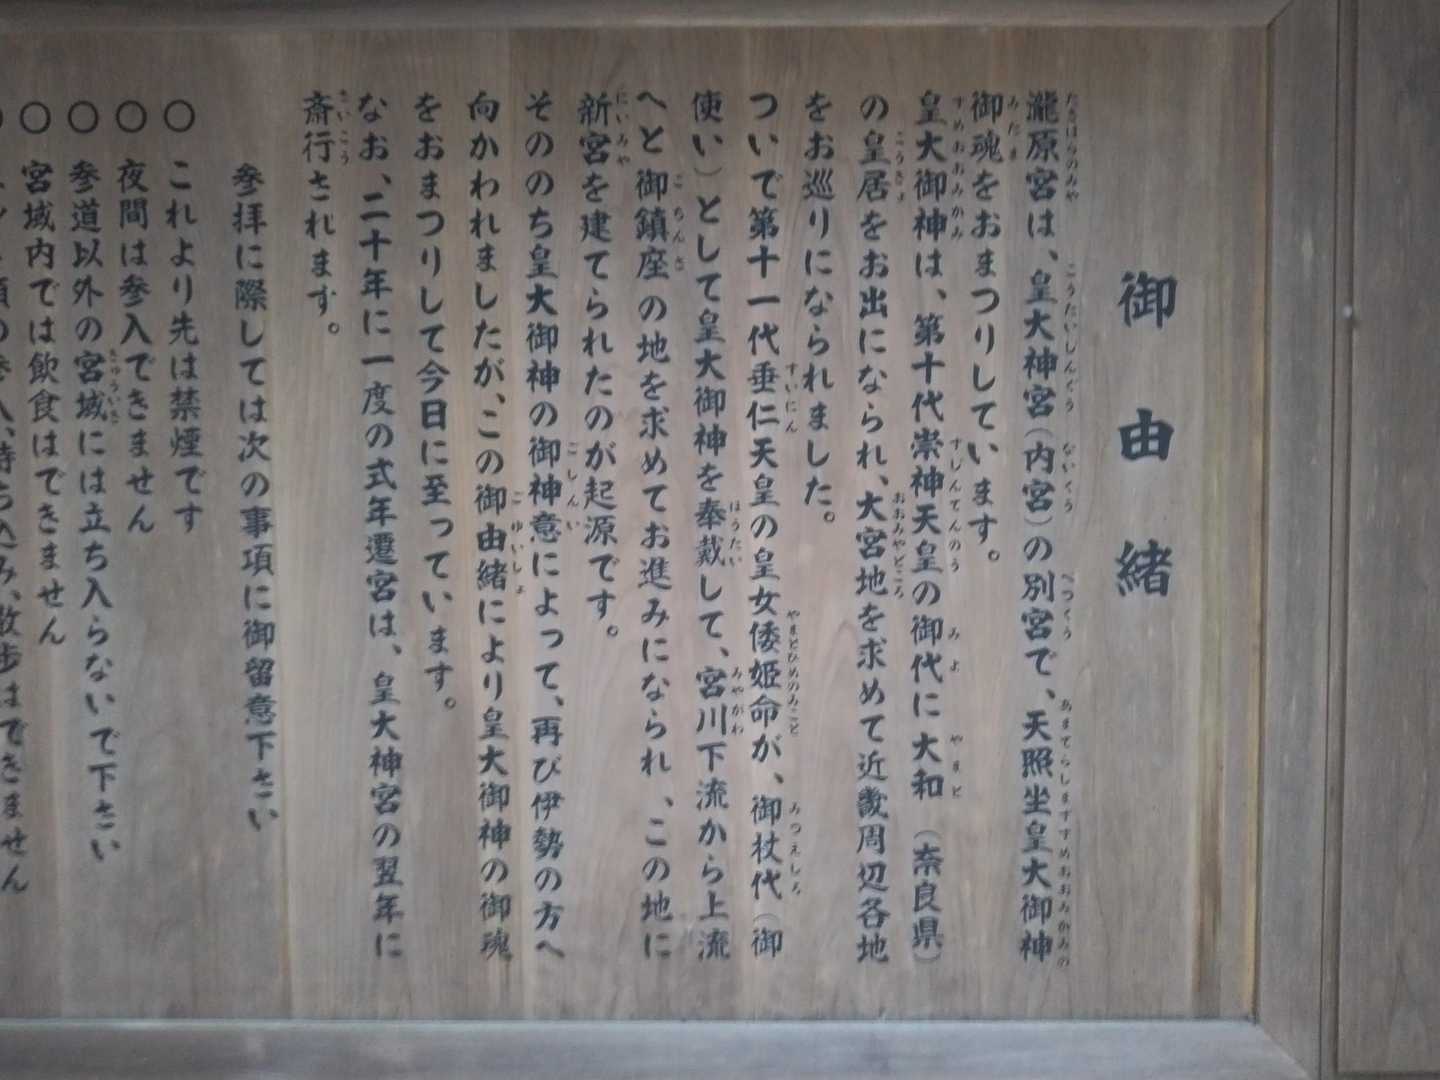 御由緒
瀧原宮は、皇大神宮（内宮）の別宮で、天照坐皇大御神
御魂をおまつりしています。
皇大御神は、第十代崇神天皇の御代に大和（奈良県）
の皇居をお出になられ、大宮地を求めて近畿周辺各地
をお巡りになられました。
ついで第十一代垂仁天皇の皇女倭姫命が、御杖代（御
使い）として皇大御神を奉戴して、宮川下流から上流
へと御鎮座の地を求めてお進みになられ、この地に
新宮を建てられたのが起源です。
そののち皇大御神の御神意によって、再び伊勢の方へ
向かわれましたが、この御由緒により皇大御神の御魂
をおまつりして今日に至っています。
なお、二十年に一度の式年遷宮は、皇大神宮の翌年に
斎行されます。
参拝に際しては次の事項に御留意下さい
○ これより先は禁煙です
○ 夜間は参入できません
○ 参道以外の宮域には立ち入らないで下さい
○ 宮域内では飲食はできません
持ち込み、散歩はできません